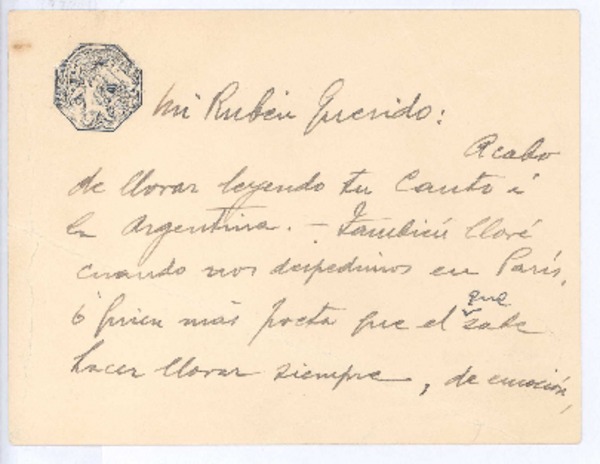 Mi Rubén Querido:
Acabo
de llorar leyendo tu Canto á
la Argentina. – También lloré
cuando nos despedimos en París,
ó quien más poeta que el que sabe
hacer llorar siempre, de emoción,